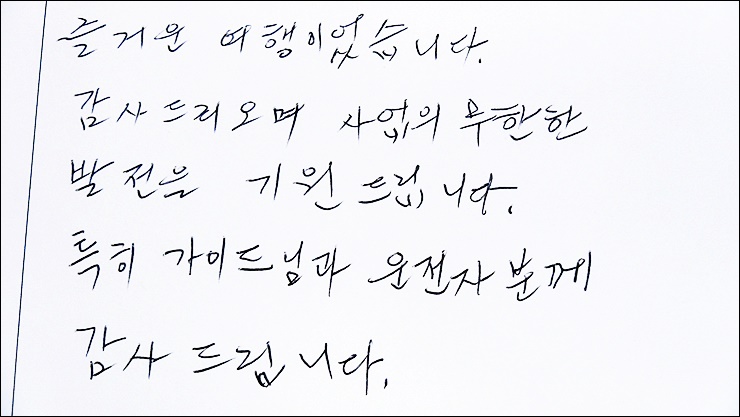 즐거운 여행이었습니다.
감사드리오며 사업의 무한한
발전을 기원드립니다.
특히 가이드님과 운전자분께
감사드립니다.